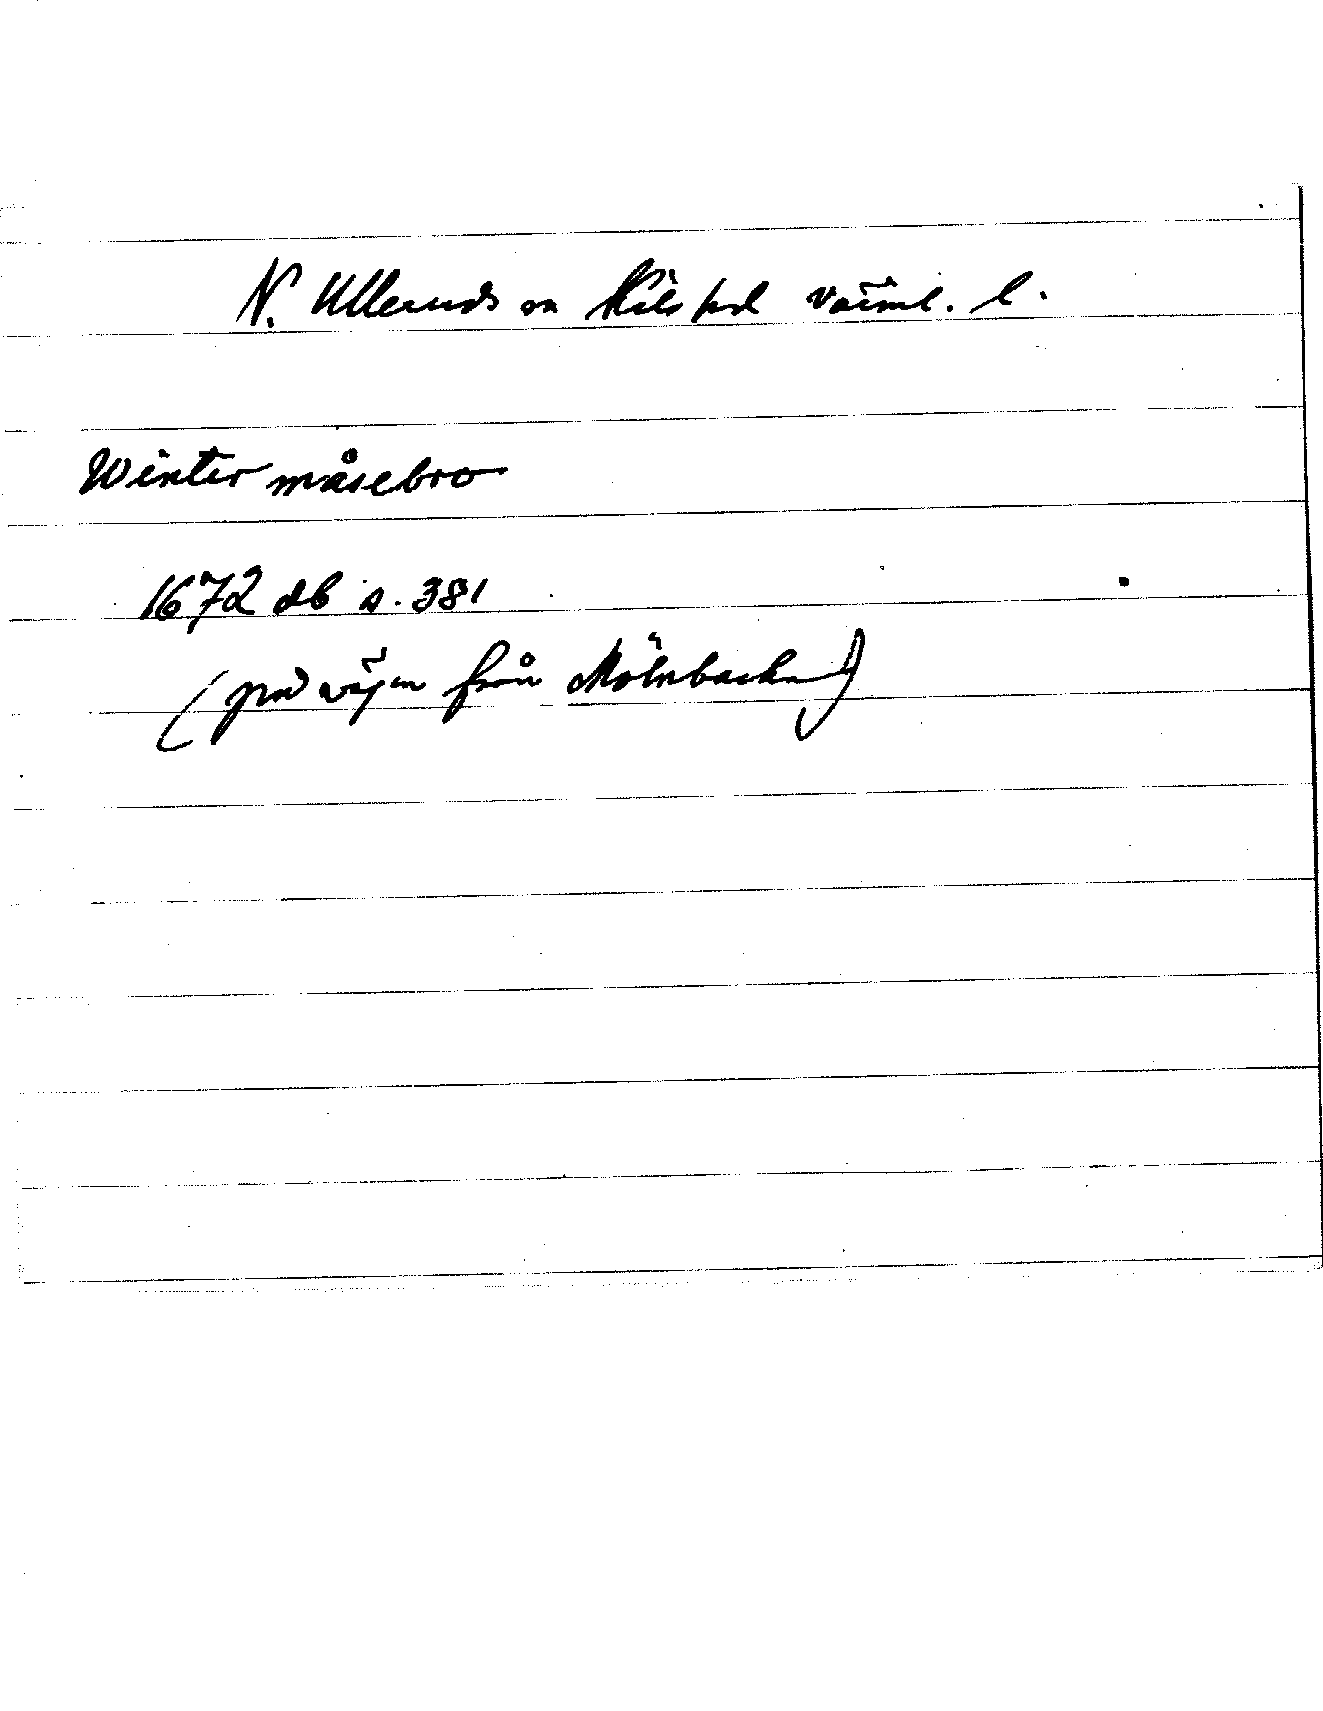 N. Ulleruds sn Kils hd värml. l.
Winter måsebro
1672 db s. 381
(på vägen från Mölnbacka)